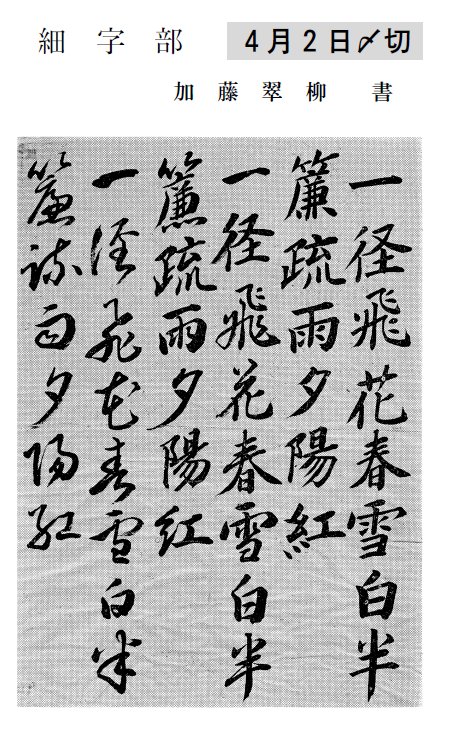 細字部
4月2日〆切
加藤翠柳 書
一径飛花春雪白半
簾疏雨夕陽紅
一径飛花春雪白半
簾疏雨夕陽紅
一径飛花春雪白半
簾疏雨夕陽紅